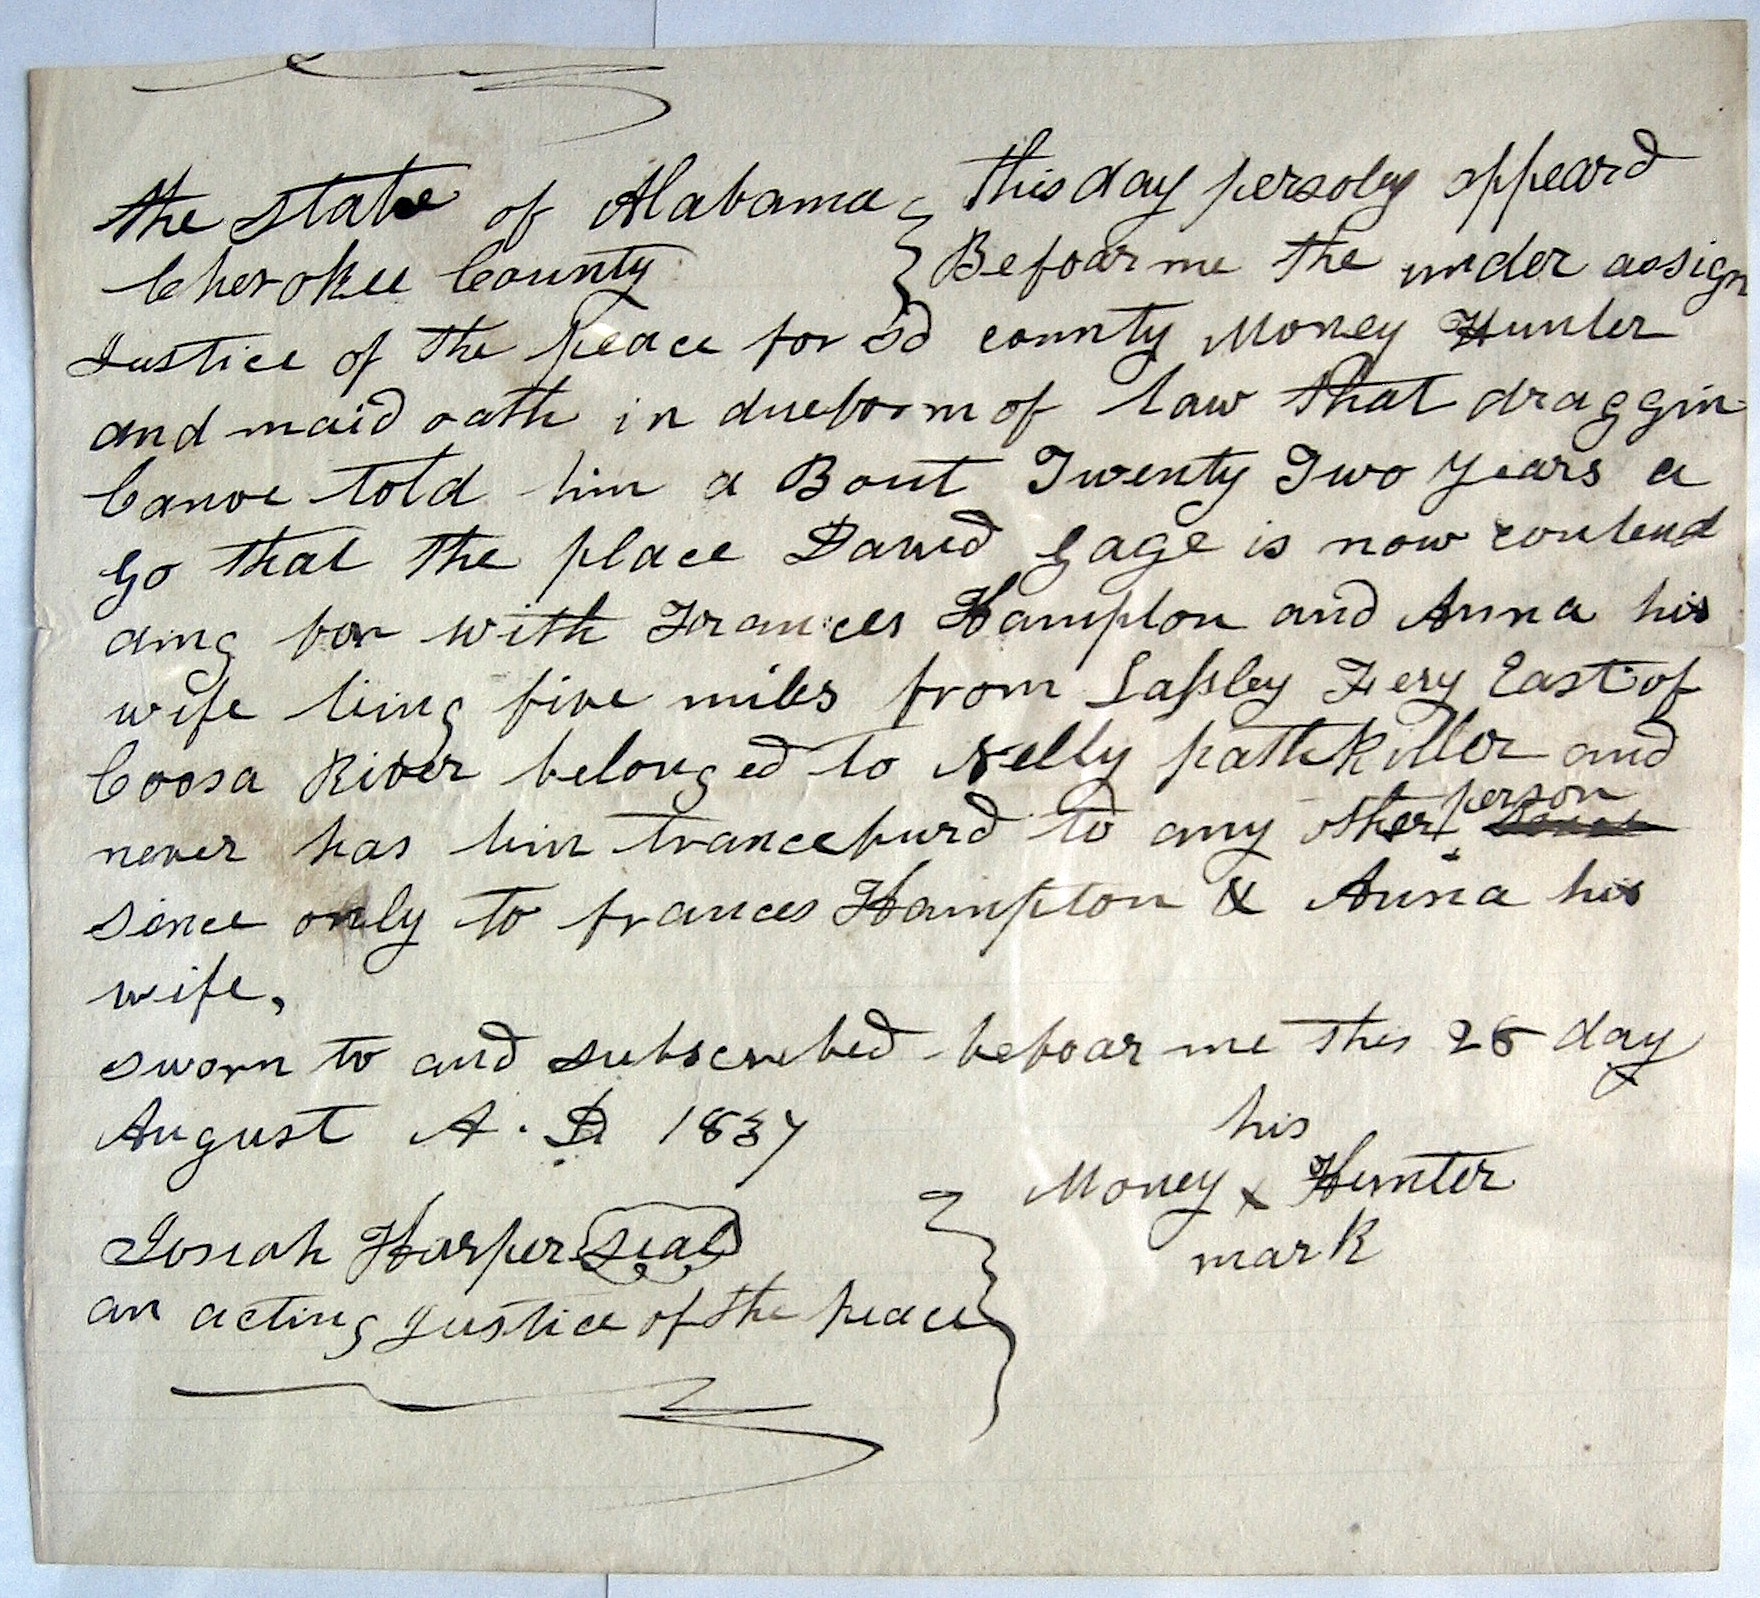 the State of Alabama } this day persoley appeard
Cherokee County } Befoar me the under assign
Justice of the peace for sd county Money Hunter
and maid oath in dueform of law that draggin
Canoe told him a Bout Twenty Two years a
go that the place David Gage is now contend
aing for with Frances Hampton and Anna his
wife liing five miles from Lassley Fery East of
Coosa River belonged to Nelly pathkiller and
never has bin trancefurd to any other person
since only to frances Hampton & Anna his
wife,
sworn to and subscrebed befoar me this 26 day
August A. D 1837
his
Money x Hunter
mark
Josiah Harper seal
an acting justice of the peace